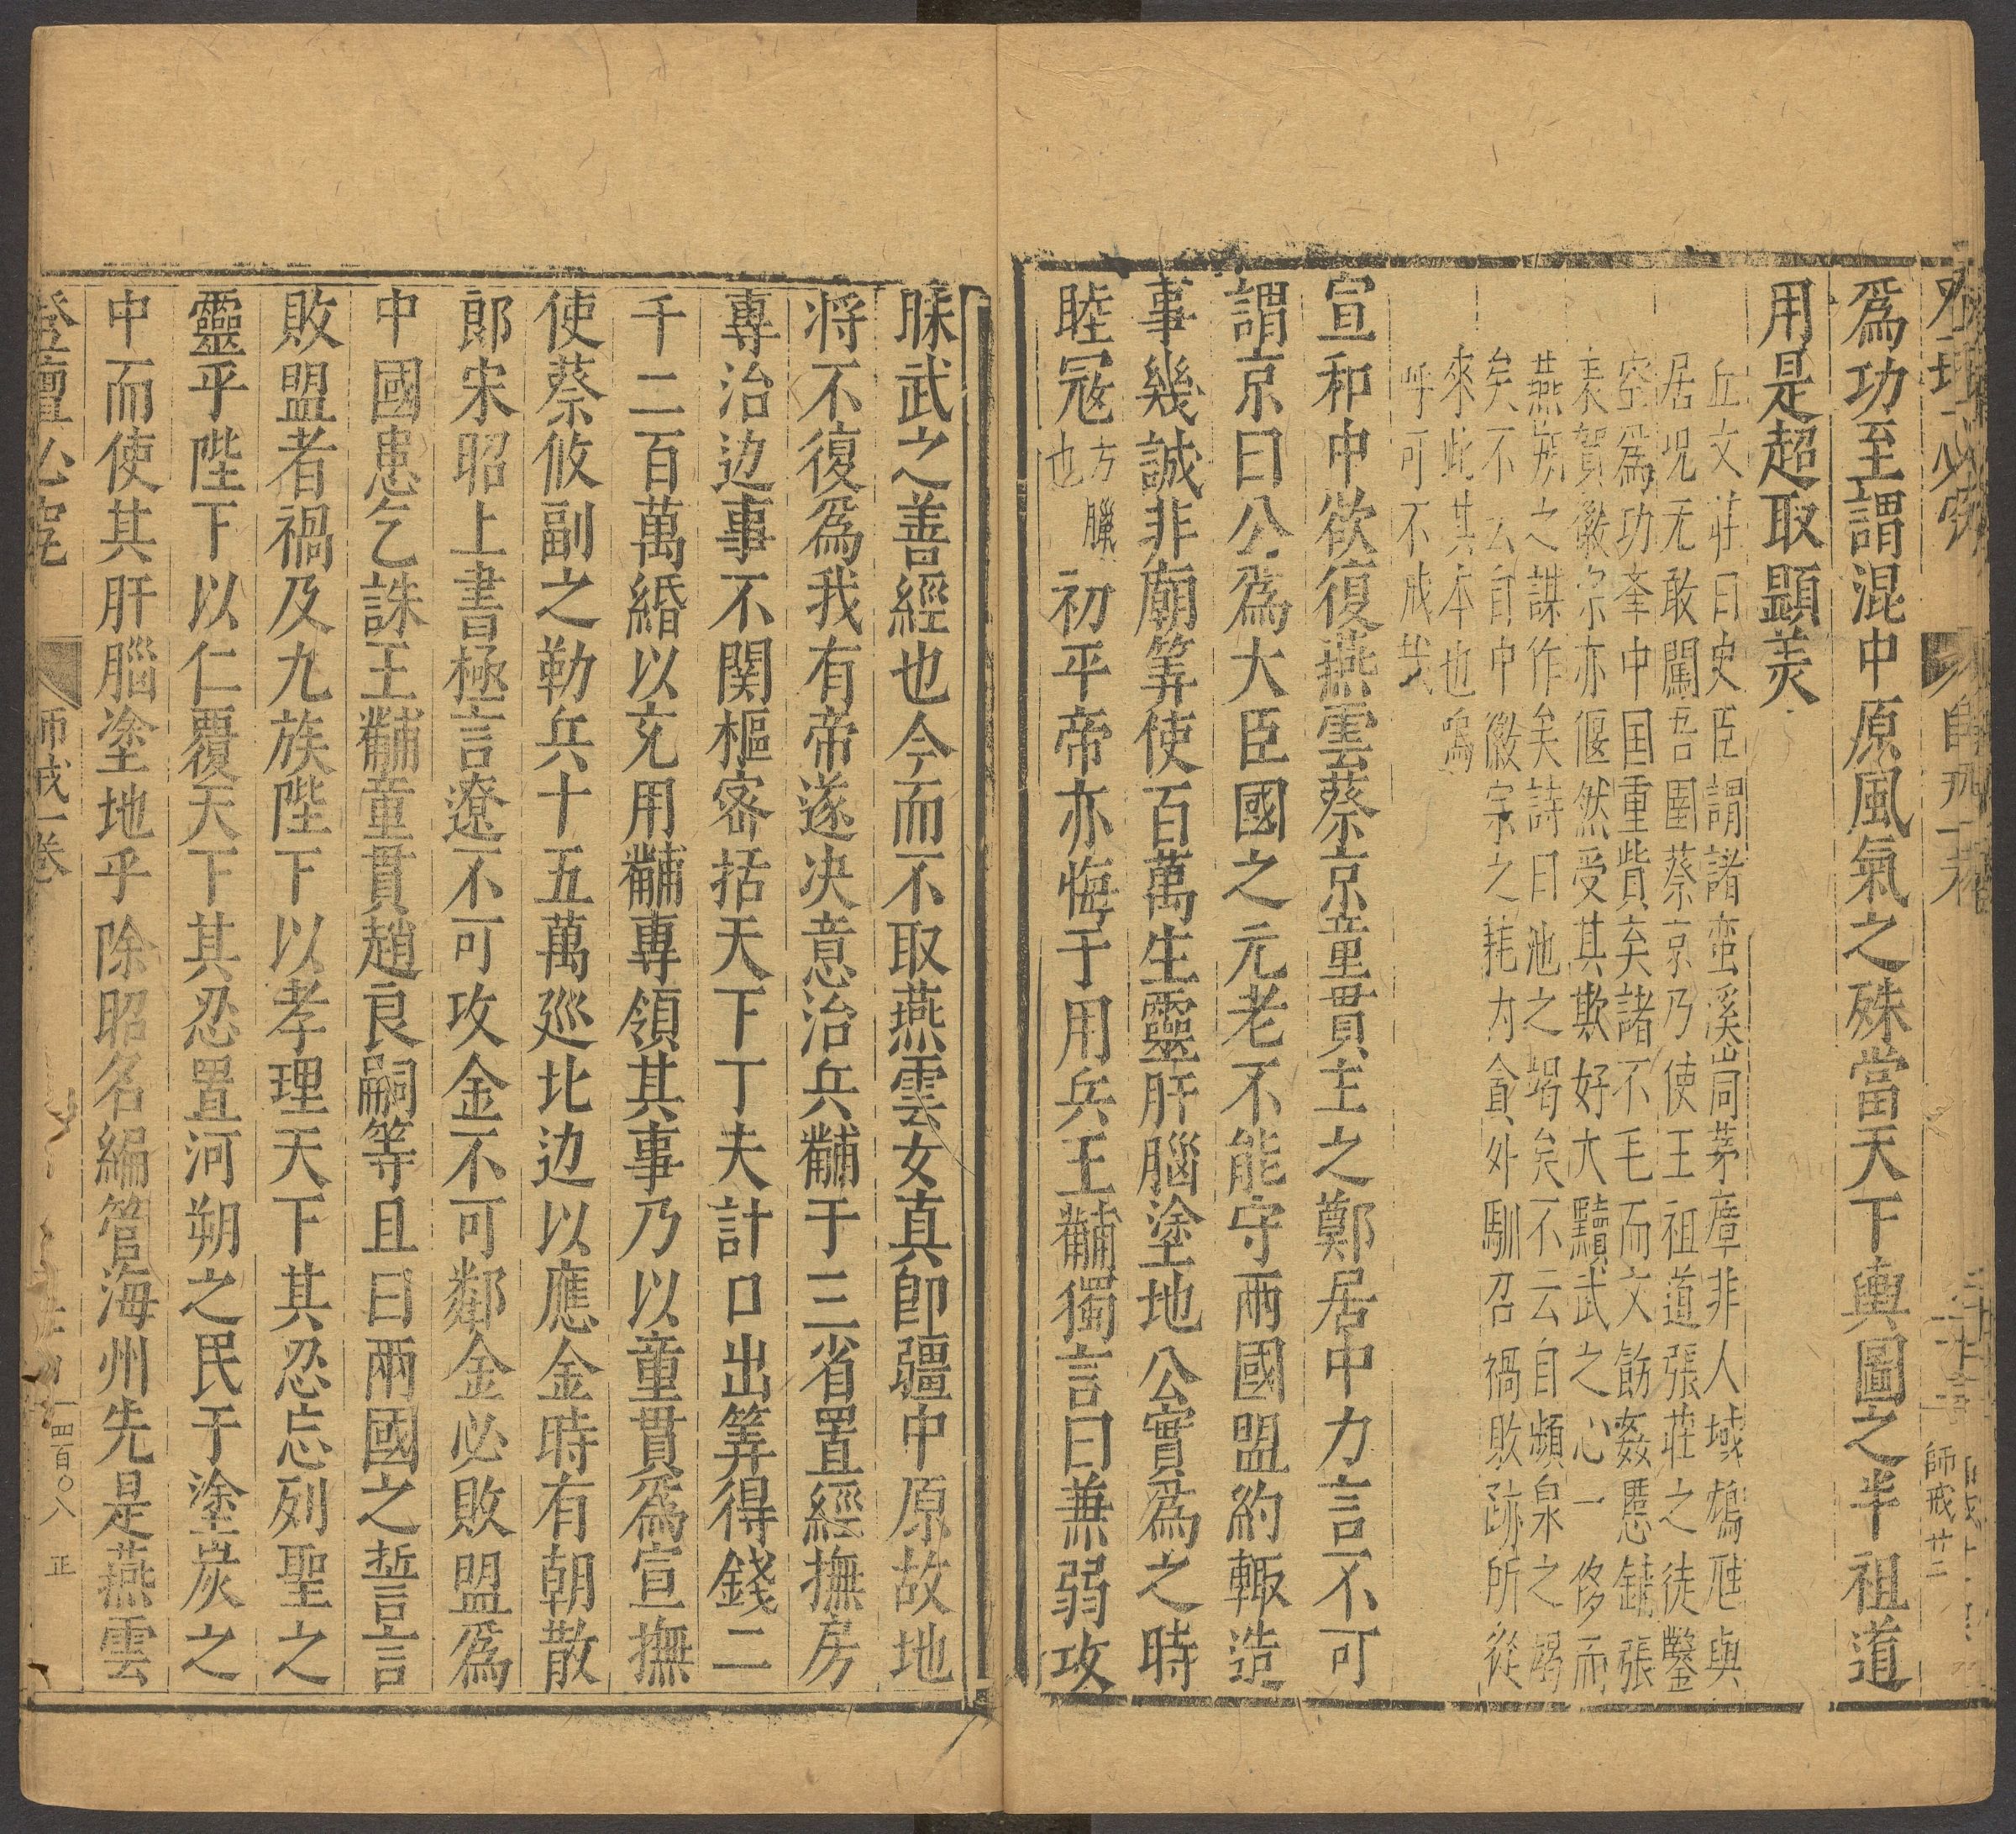 爲功至謂混中原風氣之殊當天下輿圖之半祖道
用是超取顯美
丘文莊曰史臣謂諸蛮溪峝茅瘴非人域鴂虺與
居况无敢闖吾圉蔡京乃使王祖道張莊之徒鑿
空爲功奎中国重貲矣諸不毛而文飭姦慝鋪張
表賀徽宗亦偃然受其欺好大黷武之心一侈而
燕朔之謀作矣詩曰池之竭矣不云自瀕泉之竭
矣不云自中徽宗之耗内貪外馴召禍敗跡所從
來此其本也嗚
呼可不戒㢤
宣和中欲復燕雲蔡京童貫主之鄭居中力言不可
謂京曰公爲大臣國之元老不能守兩國盟約輙造
事幾誠非廟筭使百萬生靈肝腦塗地公實爲之時
睦冦方臘也初平帝亦悔于用兵王黼獨言曰兼弱攻
昧武之善經也今而不取燕雲女真即疆中原故地
将不復爲我有帝遂决意治兵黼于三省置經撫房
專治边事不関樞密括天下丁夫計口出筭得錢二
千二百萬緡以充用黼專領其事乃以童貫爲宣撫
使蔡攸副之勒兵十五萬廵北边以應金時有朝散
郎宋昭上書極言遼不可攻金不可鄰金必敗盟爲
中國患乞誅王黼童貫趙良嗣等且曰兩國之誓言
敗盟者禍及九族陛下以孝理天下其忍忘列聖之
靈乎陛下以仁覆天下其忍置河朔之民于塗炭之
中而使其肝腦塗地乎除昭名編管海州先是燕雲
登壇必究
師戒一卷
一四百〇八 正
師戒廿二